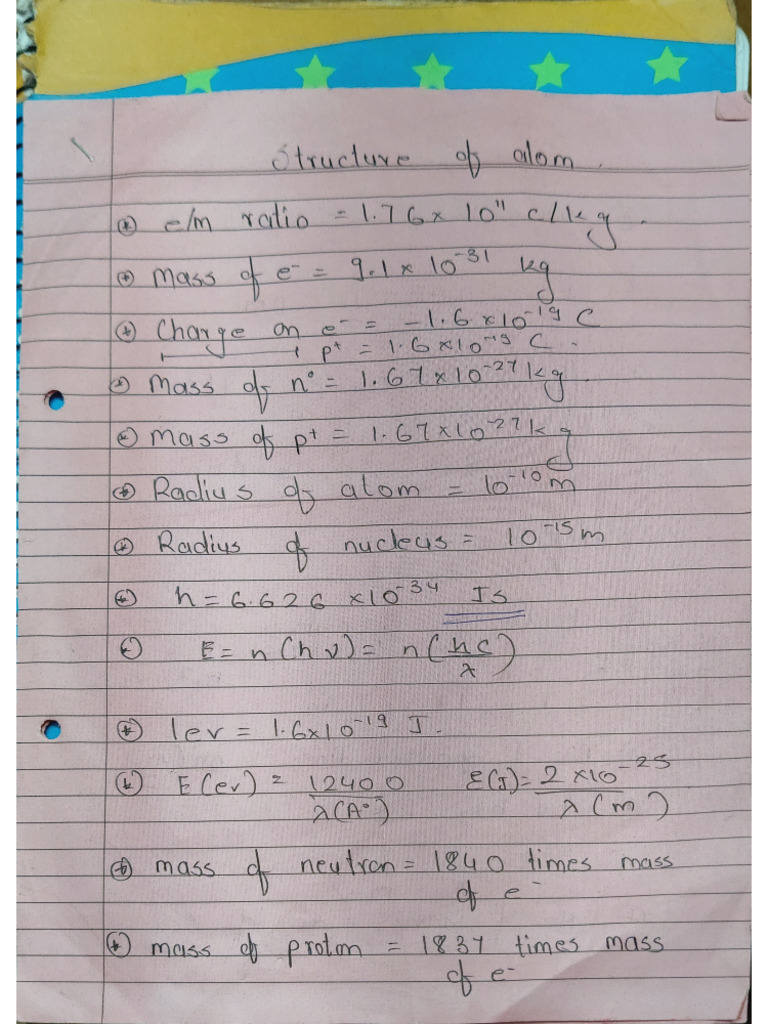 Structure of atom.
⊛ e/m ratio = 1.76 × 10¹¹ c/kg.
⊛ Mass of e⁻ = 9.1 × 10⁻³¹ kg
⊛ Charge on e⁻ = -1.6 × 10⁻¹⁹ C
p⁺ = 1.6 × 10⁻¹⁹ C.
⊛ Mass of n° = 1.67 × 10⁻²⁷ kg.
⊛ Mass of p⁺ = 1.67 × 10⁻²⁷ kg
⊛ Radius of atom = 10⁻¹⁰ m
⊛ Radius of nucleus = 10⁻¹⁵ m
⊛ h = 6.626 × 10⁻³⁴ Js
⊛ E = n(hν) = n(hc/λ)
⊛ 1ev = 1.6 × 10⁻¹⁹ J.
⊛ E(ev) = 12400/λ(A°) E(J) = 2 × 10⁻²⁵/λ(m)
⊛ mass of neutron = 1840 times mass
of e⁻
⊛ mass of proton = 1837 times mass
of e⁻